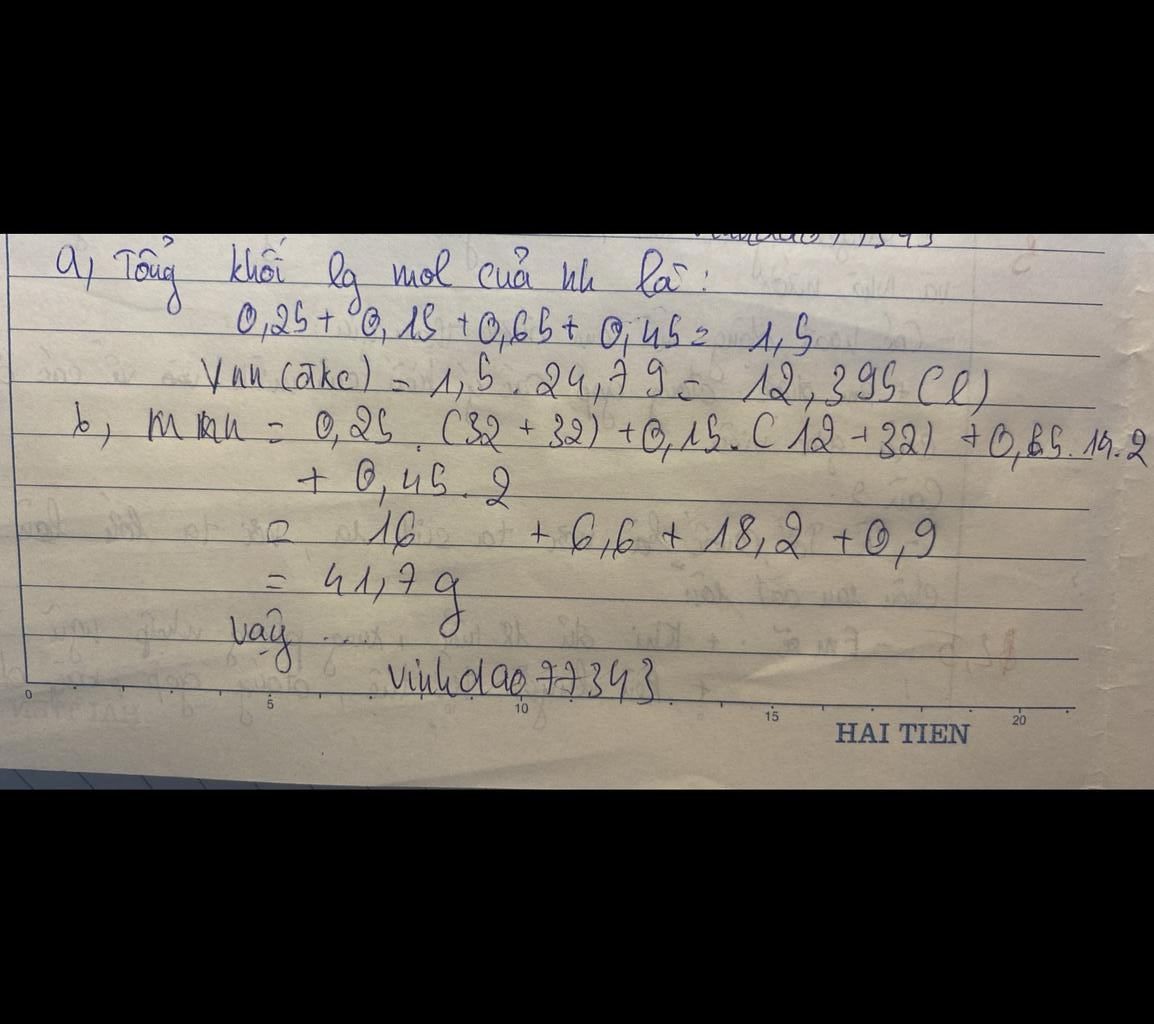 a, Tổng khối lg mol của hh là:
0,25 + 0,15 + 0,65 + 0,45 = 1,5
Vhh (đkc) = 1,5 . 24,79 = 12,395 (l)
b, m hh = 0,25 . (32 + 32) + 0,15 . (12 + 32) + 0,65 . 14 . 2
+ 0,45 . 2
= 16 + 6,6 + 18,2 + 0,9
= 41,7 g
Vậy ....
vinhdao77343
0 5 10 15 20
HAI TIEN